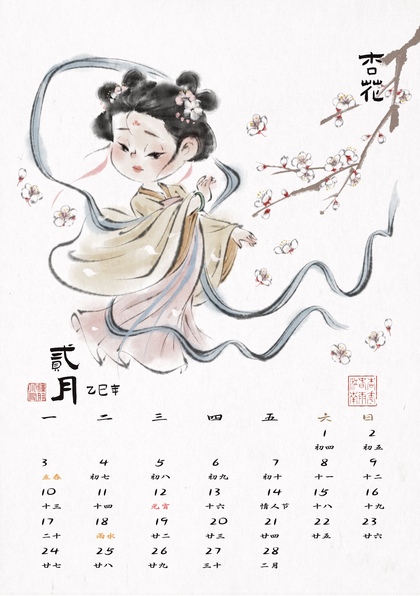 杏花
贰月 乙巳年
一 二 三 四 五 六 日
1 2
初四 初五
3 4 5 6 7 8 9
立春 初七 初八 初九 初十 十一 十二
10 11 12 13 14 15 16
十三 十四 元宵 十六 情人节 十八 十九
17 18 19 20 21 22 23
二十 雨水 廿二 廿三 廿四 廿五 廿六
24 25 26 27 28
廿七 廿八 廿九 三十 二月